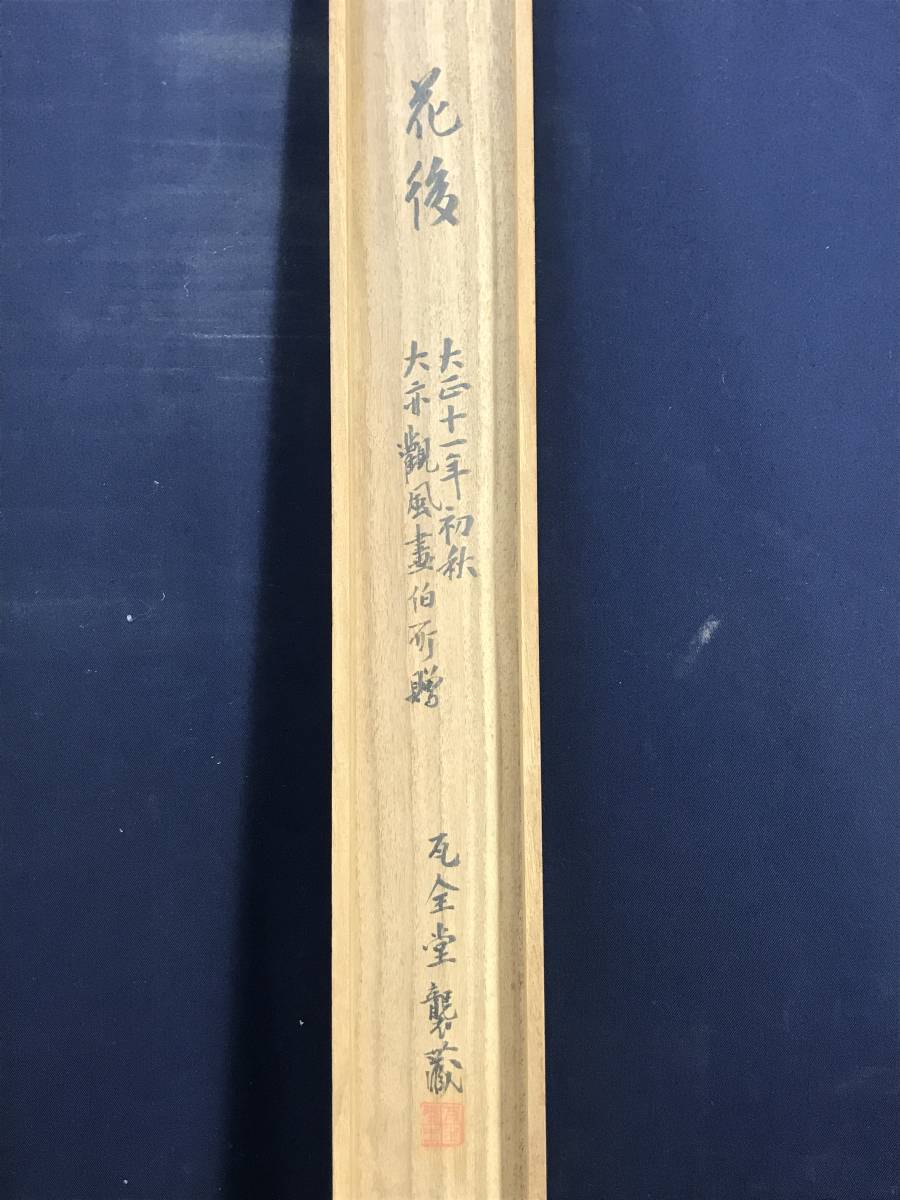 花後
大正十一年初秋
大亦觀風畫伯所贈
瓦全堂襲藏